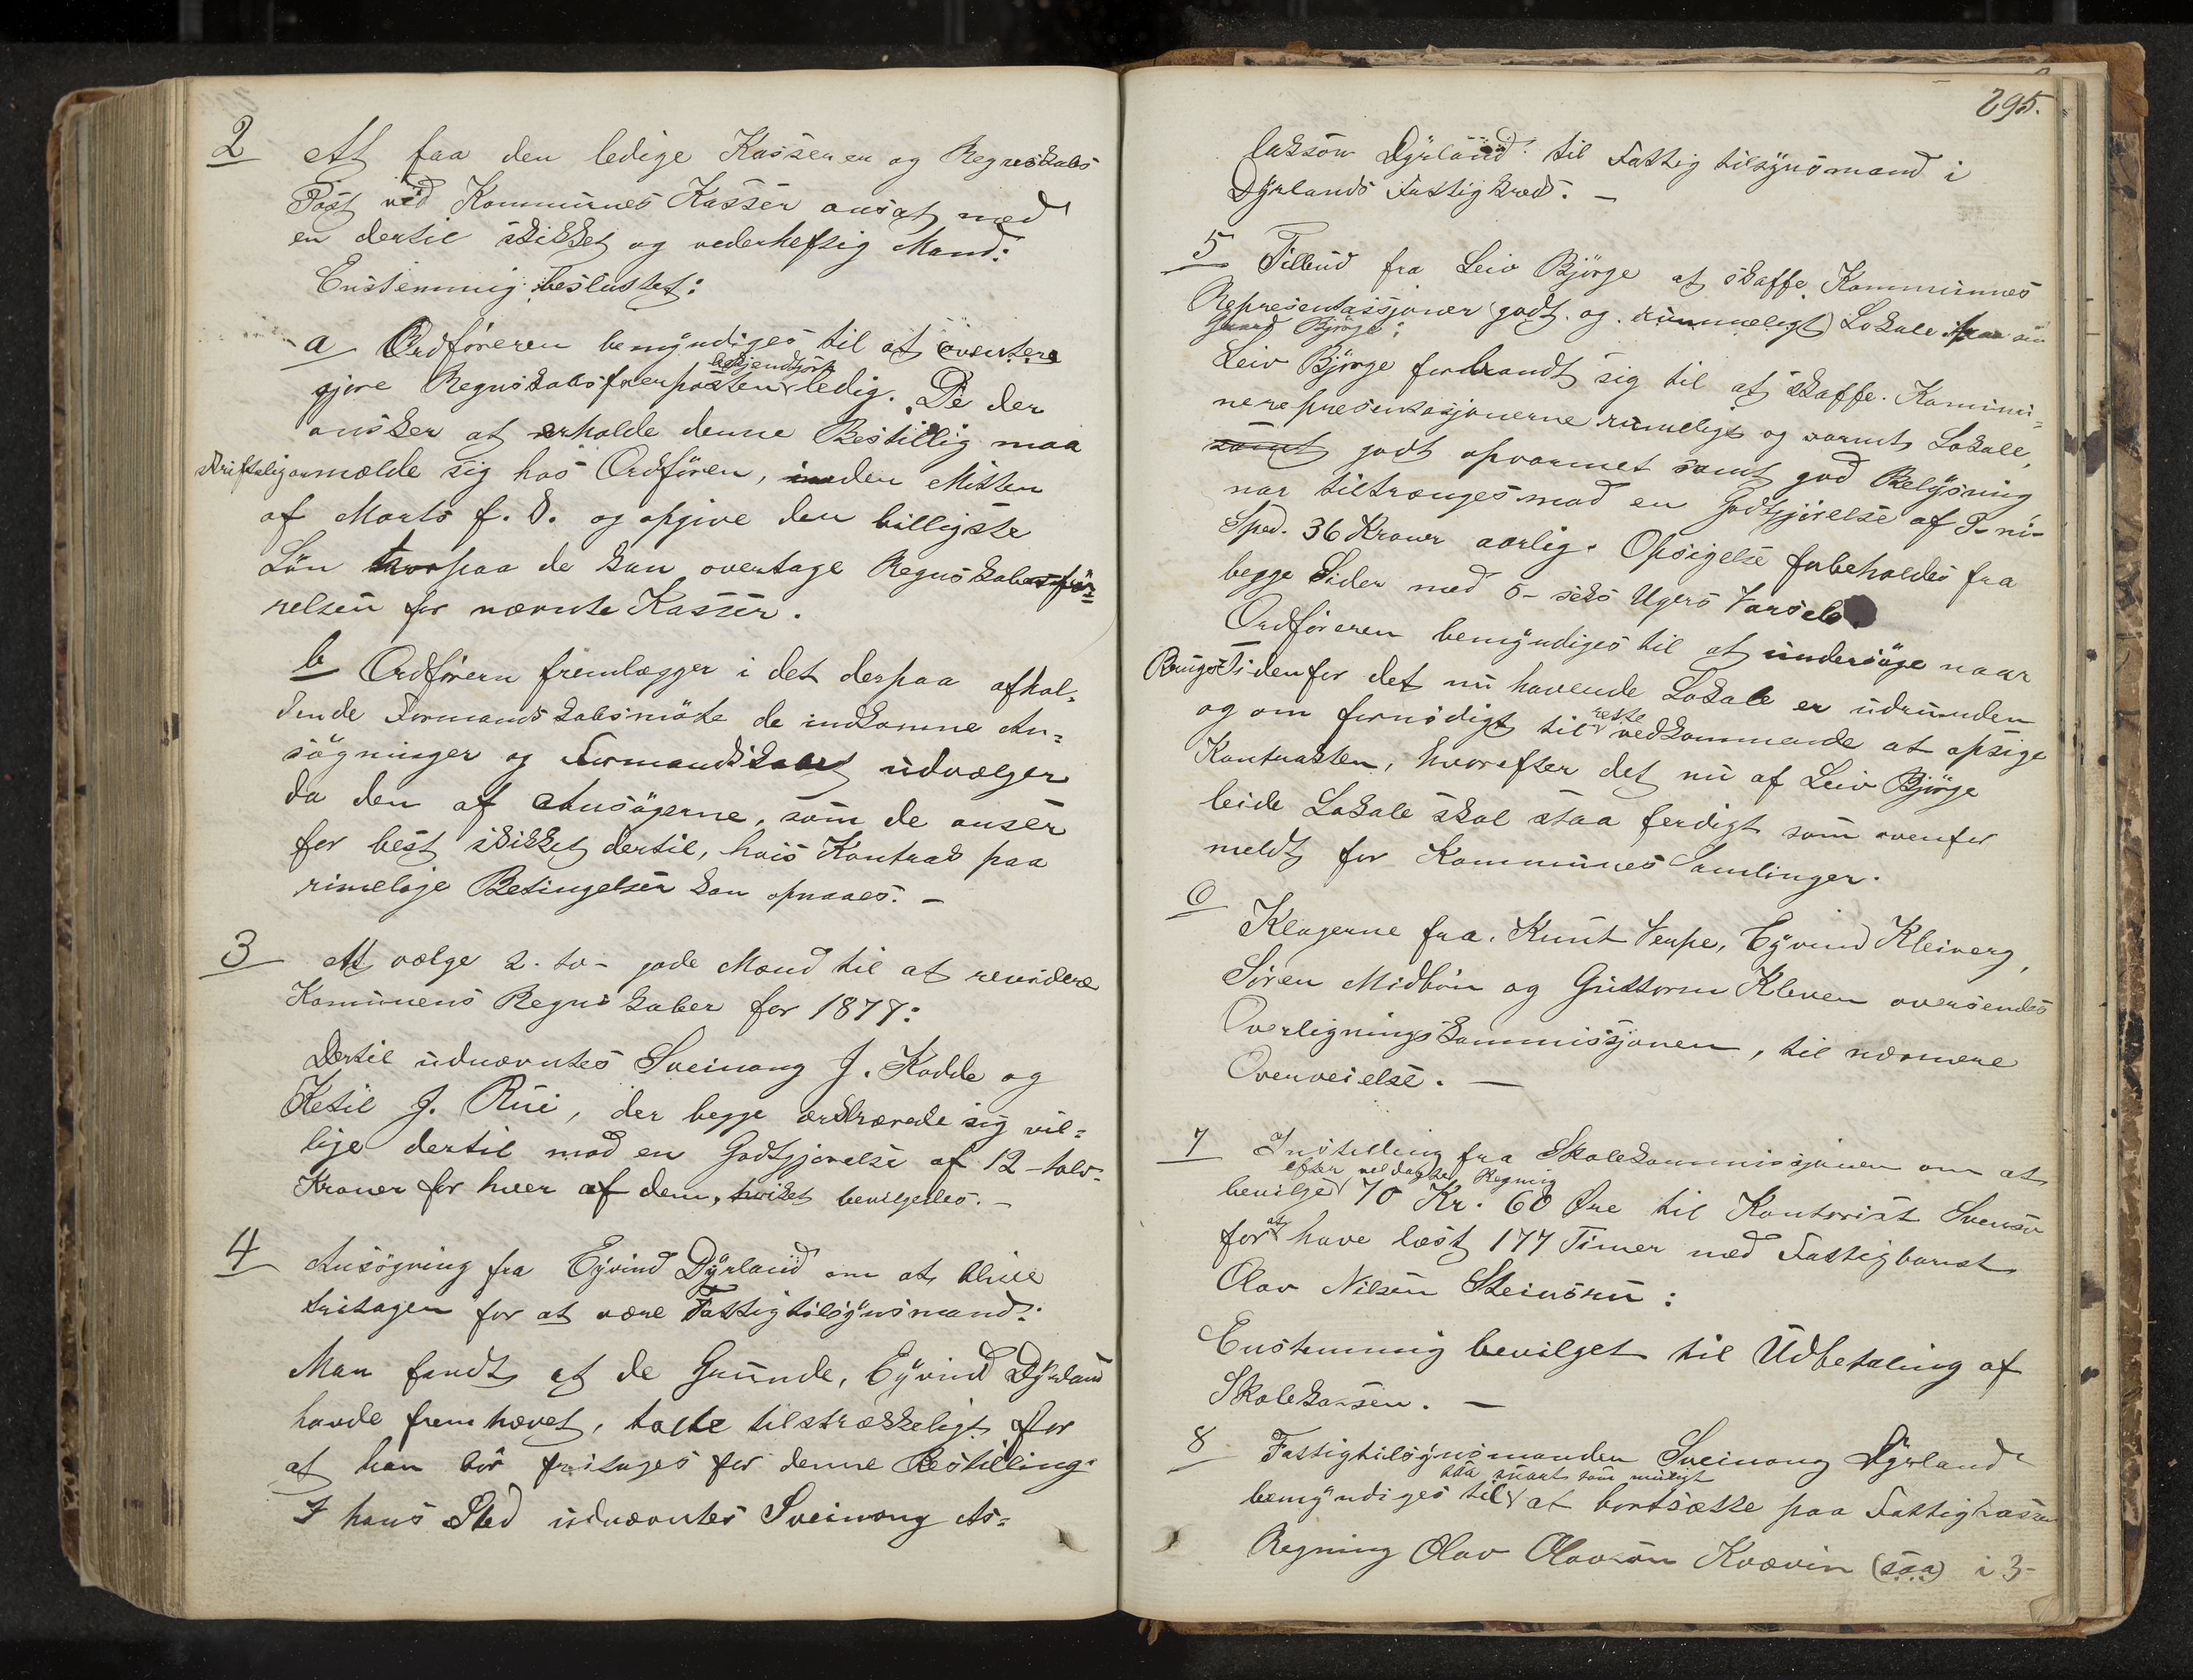 2 At faa den ledige Kasserer og Regnskabs
Post ved Kommunes Kasser ansat med
en dertil skikket og vederheftig Mand:
Enstemmig besluttet:
a Ordføreren bemyndiges til at
bekjendtgjört
gjøre Regnskabsførerposten ledig. De der
ønsker at erholde denne Bestillig maa
skriftelig anmælde sig hos Ordføren, inden Mitten
af Marts f. d. og opgive den billigste
Løn hvorpaa de kan overtage Regnskabsfør=
relsen for nævnte Kasser.
b Ordføreren fremlægger i det derpaa afhol=
dende Formandskabsmøte de indkomne An=
søgninger og Formandskabet udvælger
da den af Ansøgerne, som de anser
for best skikket dertil, hvis Kontrak paa
rimelige Betingelser kan opnaaes. -
3 At vælge 2. to- gode Mænd til at revidere
Komunens Regnskaber for 1877:
Dertil udnævntes Sveinong J. Kodde og
Ketil J. Rui, der begge erklærede sig vil=
lige dertil mod en Godtgjørelse af 12 - tolv-
Kroner for hver af dem, hvilket bevilgedes. -
4 Ansögning fra Eÿvind Dÿrland om at blive
fritagen for at være Fattigtilsÿnsmand:
Man fandt at de Grunde, Eÿvind Dÿrland
havde fremhævet, talte tilstrækkeligt for
at han bör fritages for denne Bestilling.
I hans Sted udnævntes Sveinong As=
295.
laksön Dÿrland til Fattigtilsÿnsmand i
Dÿrlands Fattigkreds. -
5 Tilbud fra Leiv Björge at skaffe Kommunnes
Representassjoner (godt og rummeligt) Lokale paa sin
Gaard Björge:
Leiv Björge forbandt sig til at skaffe Kommu=
nerepresentasjonerne rumeligt og varmt Lokale,
samt godt opvarmet samt god Belÿsning
nar tiltrænges mod en Godtgjörelse af 9- ni-
Spd. 36 Kroner aarlig. Opsigelse forbeholdes fra
begge Sider med 6- seks Ugers Varsel.
Ordföreren bemÿndiges til at undersöge naar
Brugstiden for det nu havende Lokale er udrunden
reste
og om fornödigt til vedkommende at opsige
Kontrakten, hvorefter det nu af Leiv Björge
leide Lokale skal staa ferdigt som ovenfor
meldt for Kommunes Samlinger.
6 Klagerne fra Knut Verpe, Eÿvind Kleiverg,
Sören Midböin og Guttorm Kleven oversendes
Overligningskommissjonen, til nærmere
Overveielse. -
7 Instilling fra Skolekommissjonen om at
efter vedlagte Regning
bevilge 70 Kr. 60 Øre til Kontorist Svensen
for at have læst 177 Timer med Fattigbarnet
Olav Nilsen Steinsru:
Enstemmig bevilget til Udbetaling af
Skolekassen. -
8 Fattigtilsÿnsmanden Sveinong Dÿrland
saa snart som muligt
bemÿndiges til at bortsætte paa Fattigkassens
Regning Olav Olavsön Kvævin (saa) i 3-